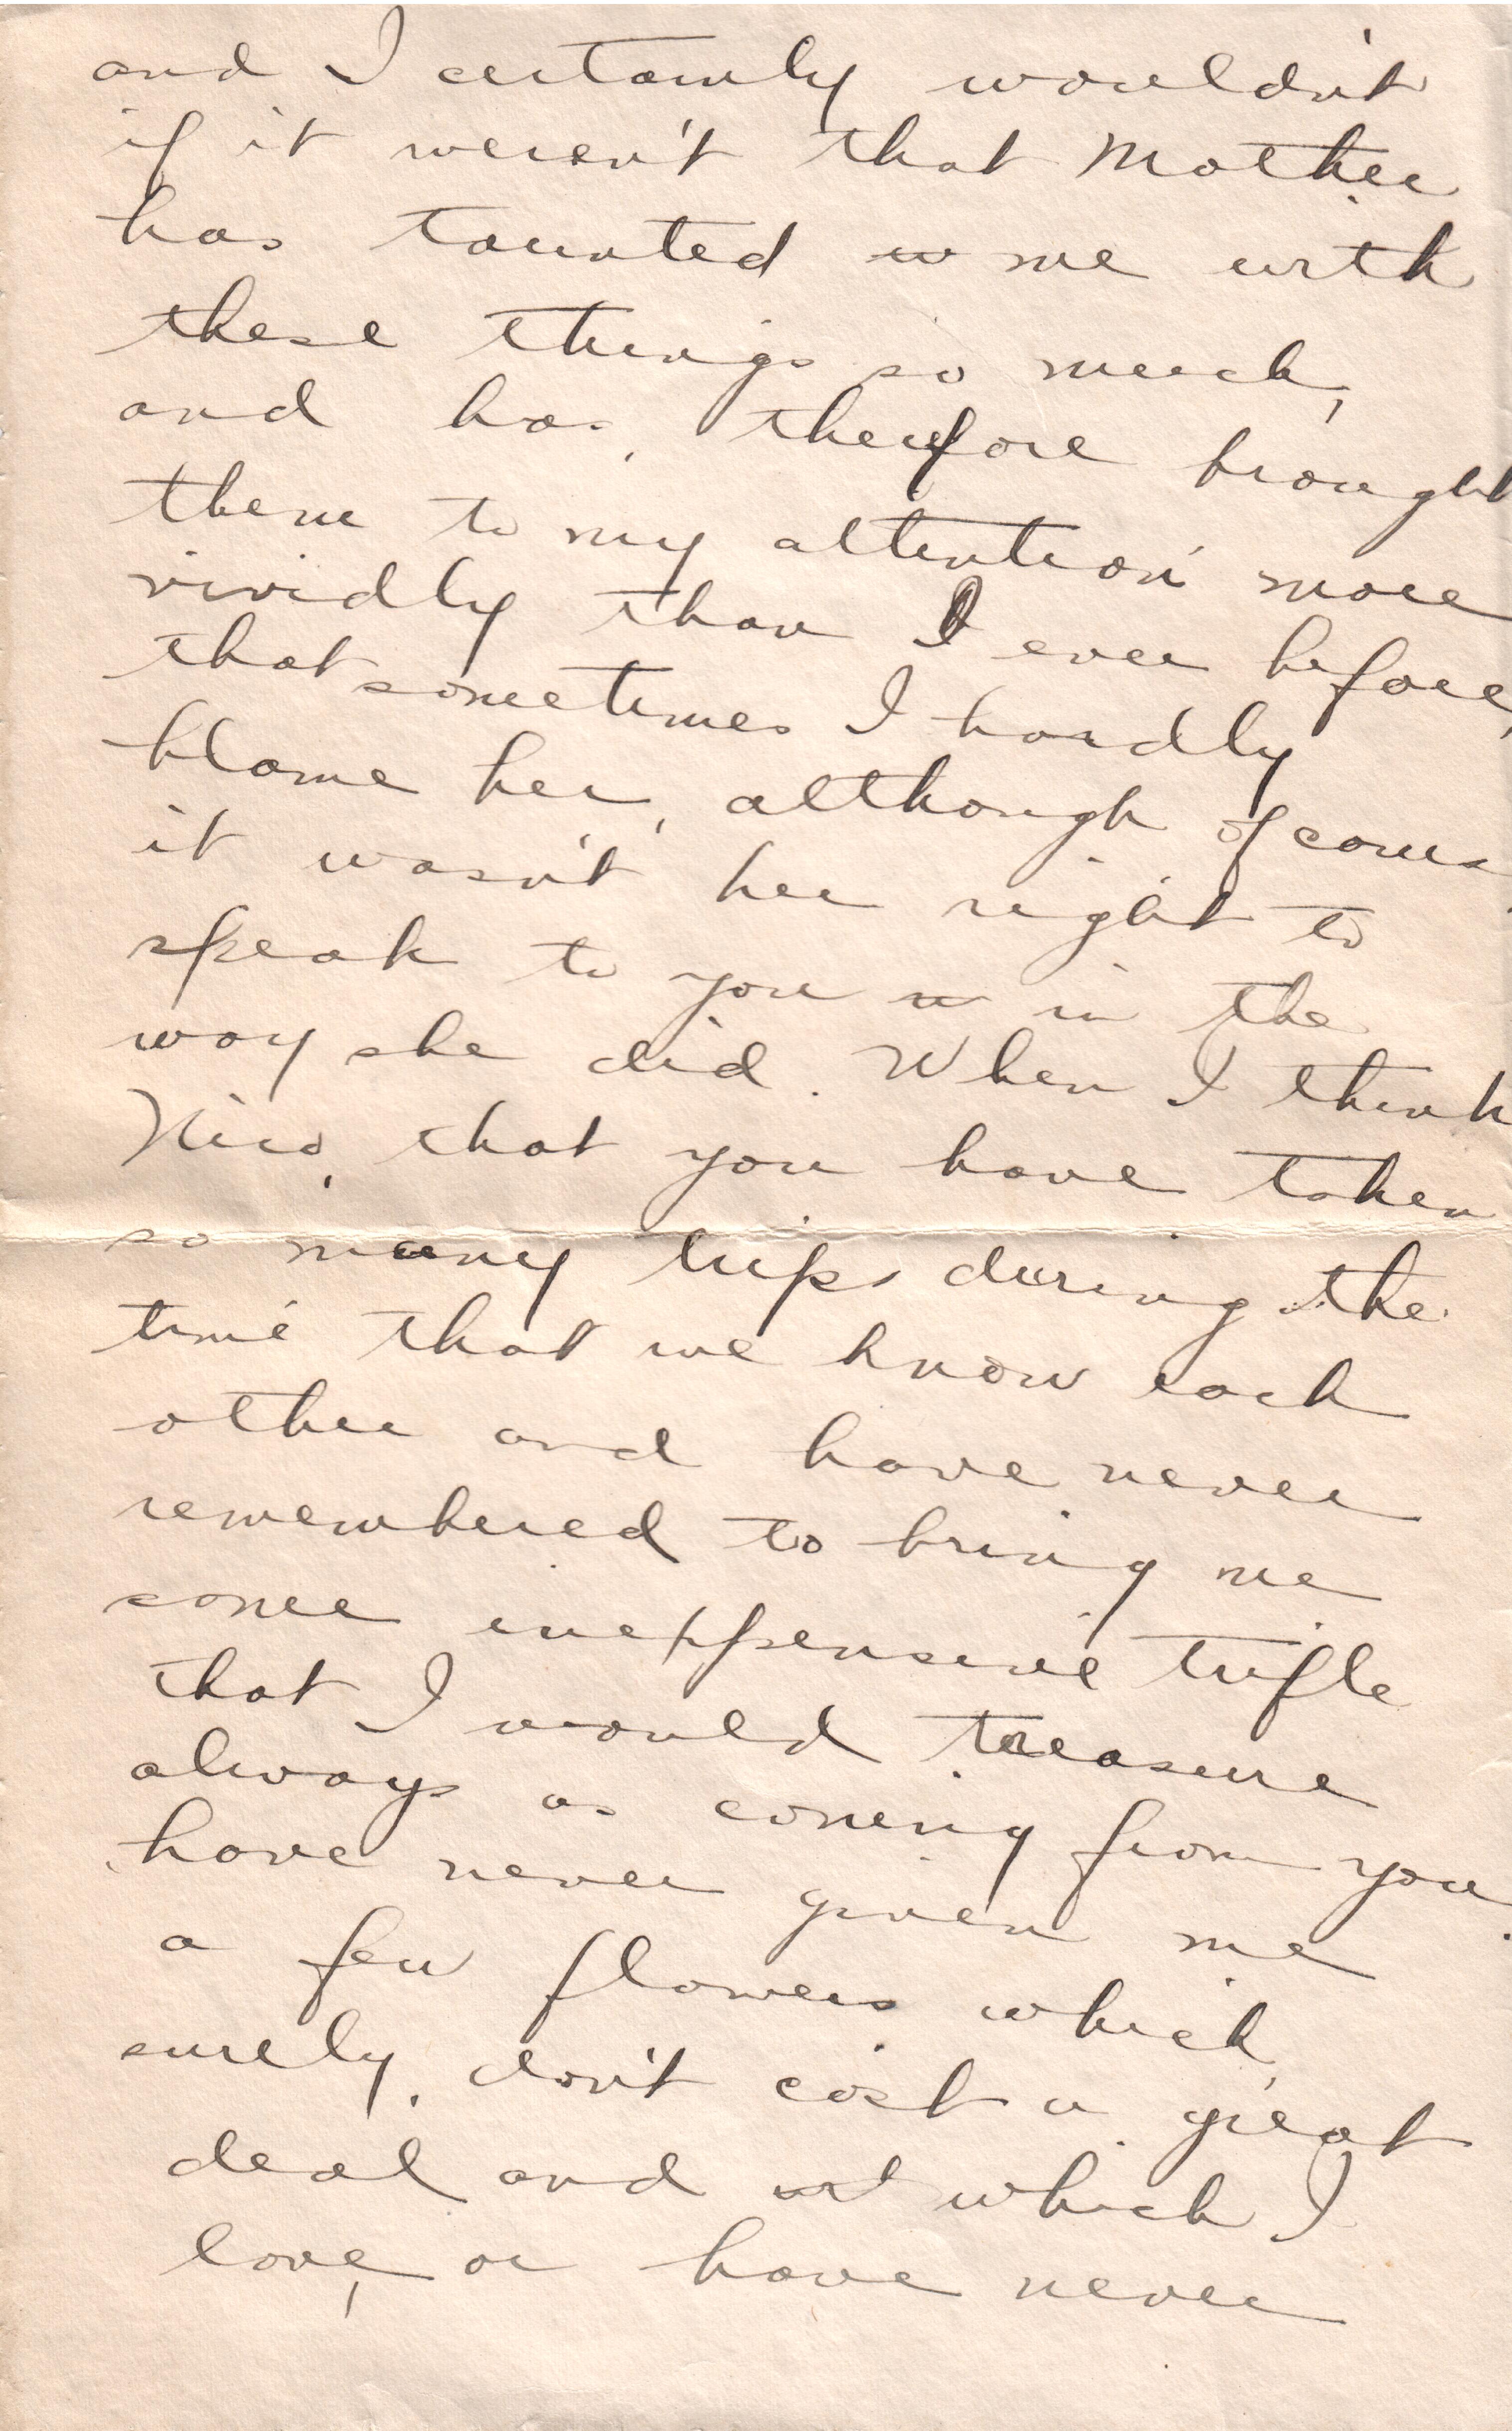 and I certainly wouldn't
if it weren't that Mother
has taunted me with
these things so much,
and has, therefore brought
them to my attention more
vividly than I ever before,
that sometimes I hardly
blame her, although of course
it wasn't her right to
speak to you in the
way she did. When I think
Nico, that you have taken
so many trips during the
time that we know each
other and have never
remembered to bring me
some inexpensive trifle
that I would treasure
always as coming from you
have never given me
a few flowers which,
surely, don't cost a great
deal and which I
love, or have never